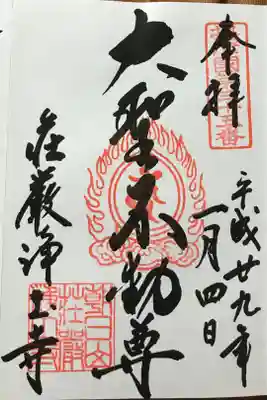 奉拝
平成廿九年
一月四日
大聖不動尊
荘厳浄土寺